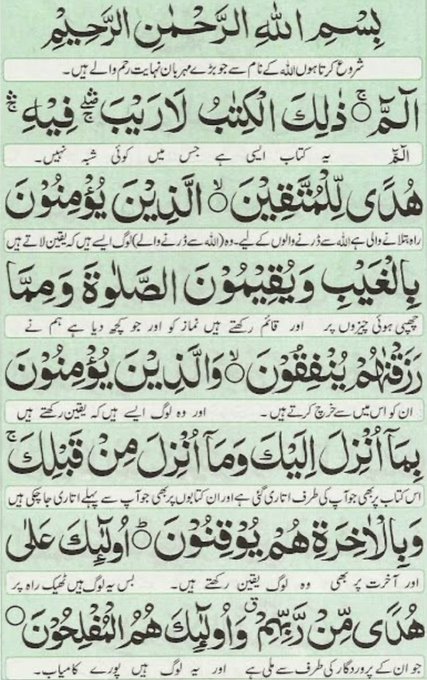 بِسْمِ اللّٰهِ الرَّحْمٰنِ الرَّحِيْمِ
شروع کرتا ہوں اللہ کے نام سے جو بڑے مہربان نہایت رحم والے ہیں۔
الٓمّٓ ۚ○ ذٰلِكَ الْكِتٰبُ لَا رَيْبَ ۛۖۚ فِيْهِ ۛۚ
الٓمّٓ یہ کتاب ایسی ہے جس میں کوئی شبہ نہیں۔
هُدًى لِّلْمُتَّقِيْنَ ۙ○ الَّذِيْنَ يُؤْمِنُوْنَ
راہ بتلانے والی ہے اللہ سے ڈرنے والوں کے لیے۔ وہ (اللہ سے ڈرنے والے) لوگ ایسے ہیں کہ یقین لاتے ہیں
بِالْغَيْبِ وَيُقِيْمُوْنَ الصَّلٰوةَ وَمِمَّا
چھپی ہوئی چیزوں پر اور قائم رکھتے ہیں نماز کو اور جو کچھ دیا ہے ہم نے
رَزَقْنٰهُمْ يُنْفِقُوْنَ ۙ○ وَالَّذِيْنَ يُؤْمِنُوْنَ
ان کو اس میں سے خرچ کرتے ہیں۔ اور وہ لوگ ایسے ہیں کہ یقین رکھتے ہیں
بِمَآ اُنْزِلَ اِلَيْكَ وَمَآ اُنْزِلَ مِنْ قَبْلِكَ ۚ
اس کتاب پر بھی جو آپ کی طرف اتاری گئی ہے اور ان کتابوں پر بھی جو آپ سے پہلے اتاری جا چکی ہیں
وَبِالْاٰخِرَةِ هُمْ يُوْقِنُوْنَ ؕ○ اُولٰٓئِكَ عَلٰى
اور آخرت پر بھی وہ لوگ یقین رکھتے ہیں۔ بس یہ لوگ ہیں ٹھیک راہ پر
هُدًى مِّنْ رَّبِّهِمْ ۗ وَاُولٰٓئِكَ هُمُ الْمُفْلِحُوْنَ ○
جو ان کے پروردگار کی طرف سے ملی ہے اور یہ لوگ ہیں پورے کامیاب۔